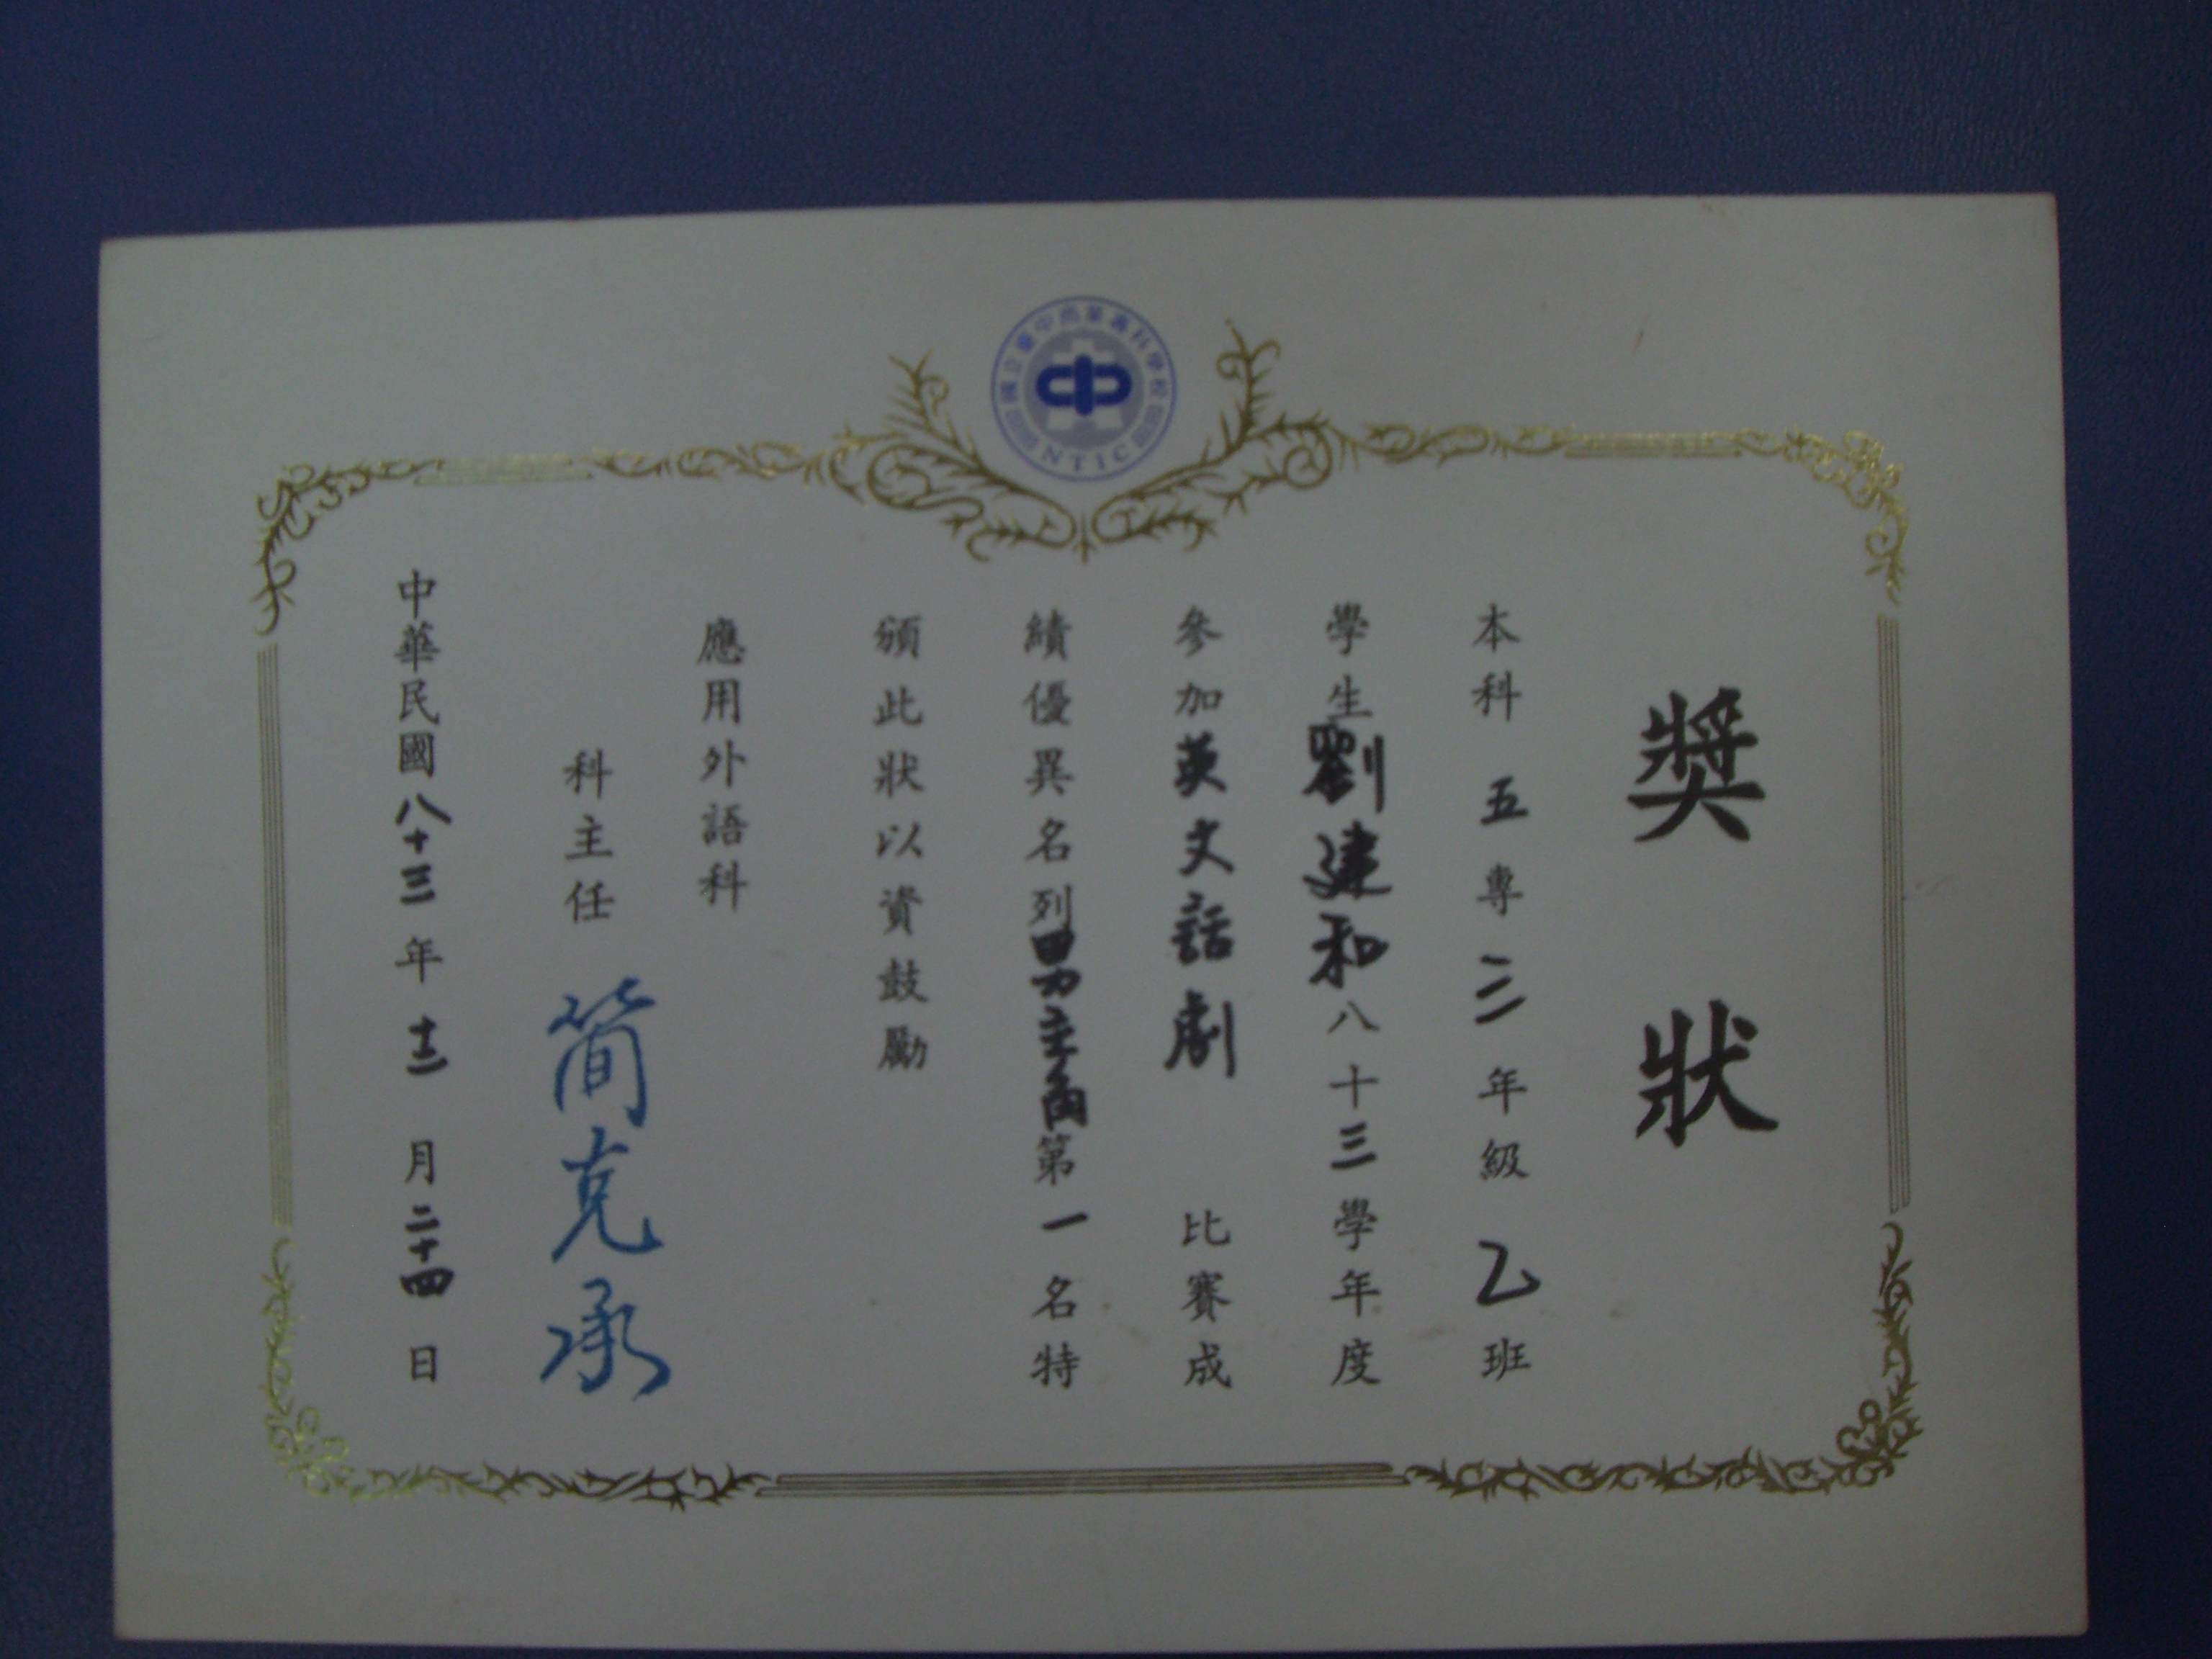 國立臺中商業專科學校
NTIC
獎狀
本科 五 專 三 年級 乙 班
學生劉建和八十三學年度
參加英文話劇 比賽成
績優異名列男主角第一名特
頒此狀以資鼓勵
應用外語科
科主任 簡克承
中華民國八十三年 十二 月二十四日